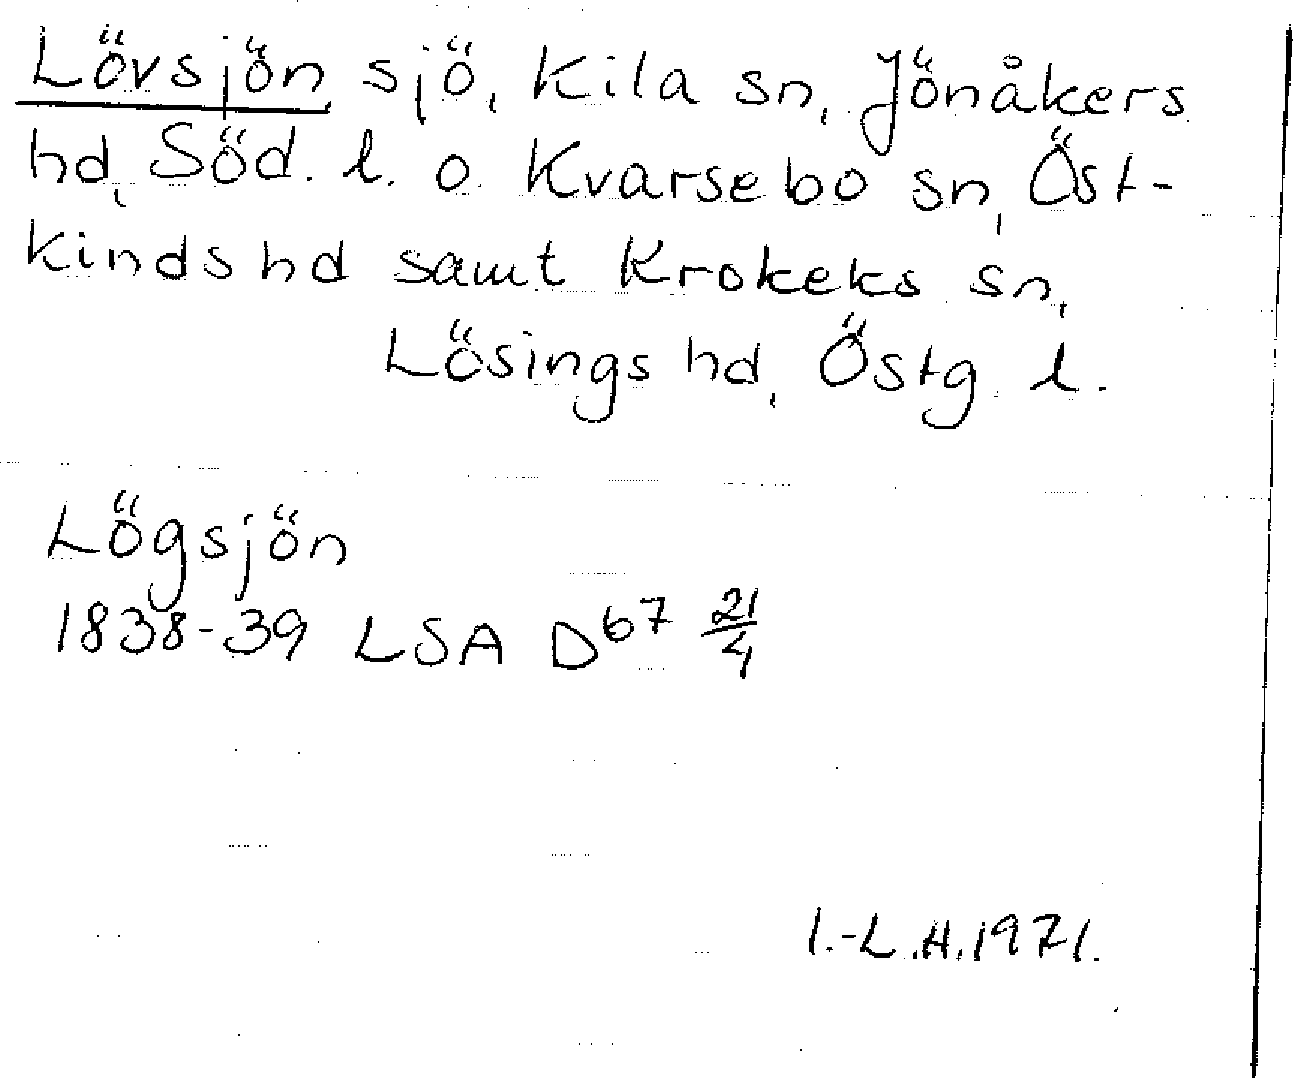 Lövsjön sjö, Kila sn, Jönåkers
hd, Söd. l. o. Kvarsebo sn, Öst-
kinds hd samt Krokeks sn,
Lösings hd, Östg. l.
Lögsjön
1838-39 LSA D67 21/4
I.-L.H. 1971.